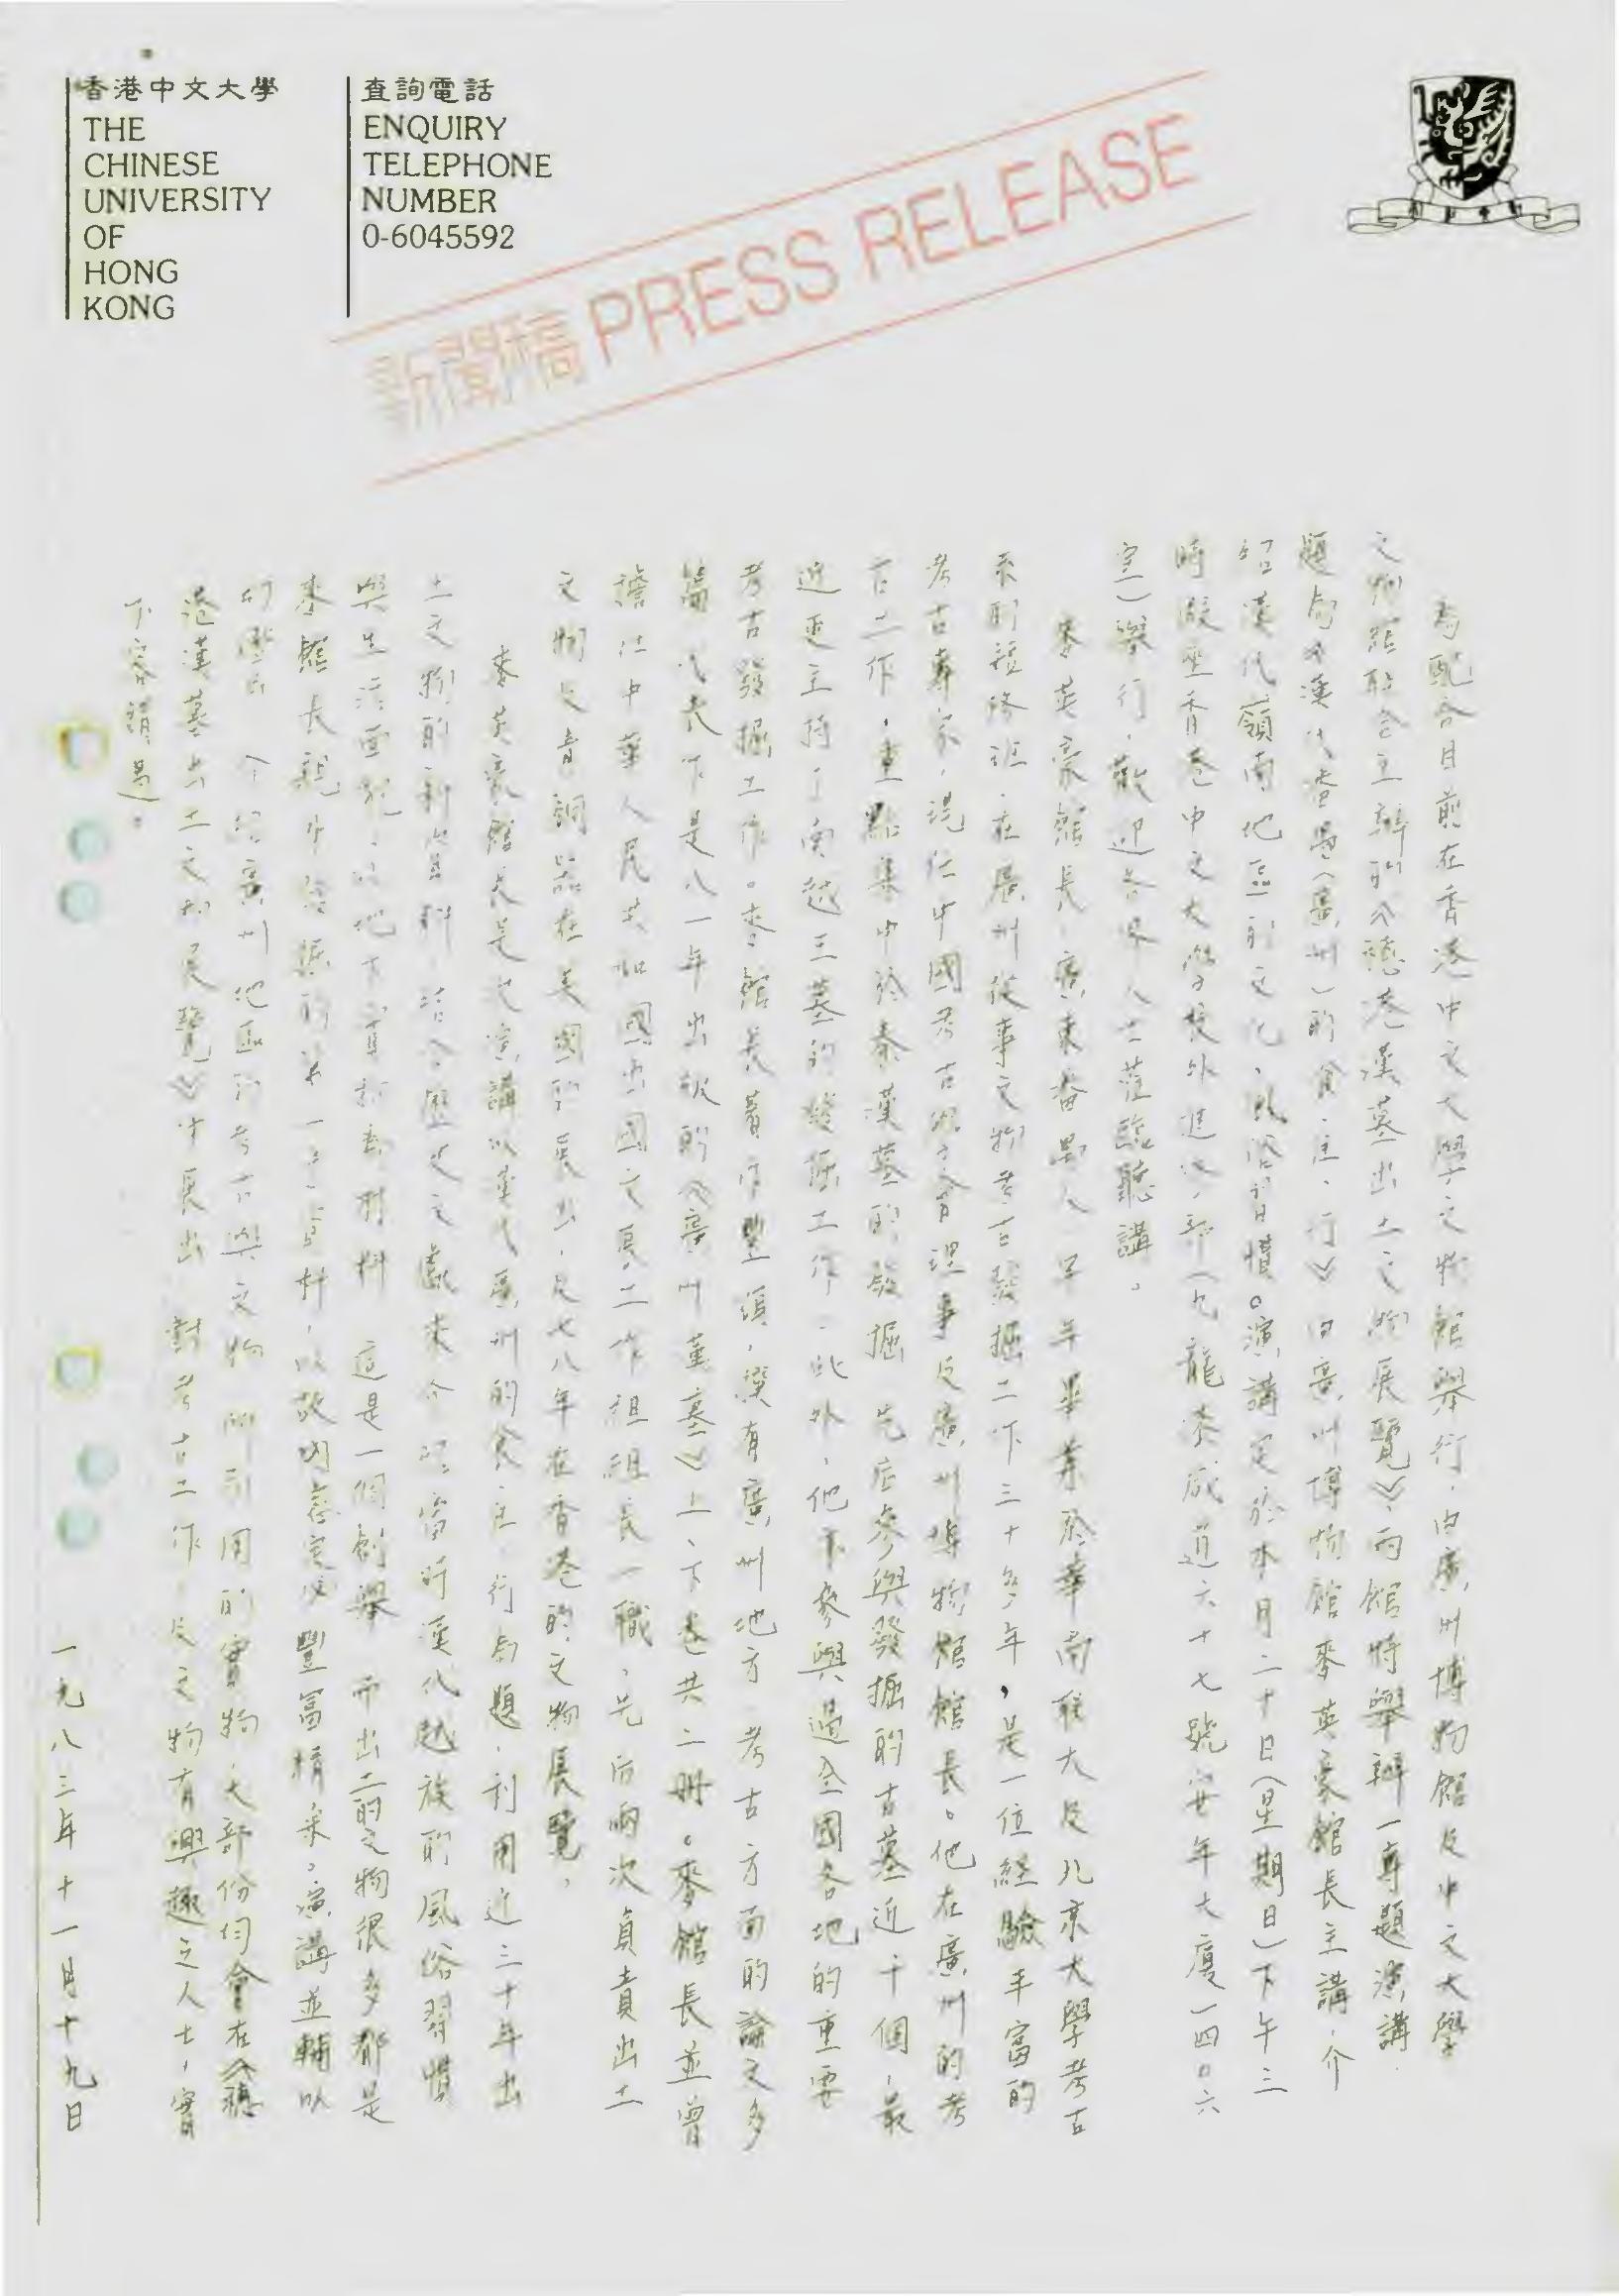 香港中文大學
THE
CHINESE
UNIVERSITY
OF
HONG
KONG
查詢電話
ENQUIRY
TELEPHONE
NUMBER
0-6045592
新聞稿 PRESS RELEASE
為配合目前在香港中文大學文物館舉行,由廣州博物館及中文大學
文物館聯合主辦的《穗港漢墓出土文物展覽》,兩館將舉辦一專題演講,
題為《漢代番禺(廣州)的食、住、行》由廣州博物館麥英豪館長主講,介
紹漢代嶺南地區的文化、風俗習慣。演講定於本月二十日(星期日)下午三
時假座香港中文大學校外進修部(九龍漆咸道六十七號安年大廈一四〇六
室)舉行,歡迎各界人士蒞臨聽講。
麥英豪館長,廣東番禺人,早年畢業於華南聯大及北京大學考古
系的進修班,在廣州從事文物考古發掘工作三十多年,是一位經驗丰富的
考古專家,現任中國考古學會理事及廣州博物館館長。他在廣州的考
古工作,重點集中於秦漢墓的發掘,先后參與發掘的古墓近千個,最
近更主持了南越王墓的發掘工作,此外,他亦參與過全國各地的重要
考古發掘工作。麥館長著作豐碩,撰有廣州地方考古方面的論文多
篇,代表作是八一年出版的《廣州漢墓》上、下卷共二冊。麥館長並曾
擔任中華人民共和國出國文展工作組組長一職,先后兩次負責出土
文物及青銅器在美國的展出,及七八年在香港的文物展覽。
麥英豪館長是次演講以漢代廣州的食、住、行為題,利用近三十年出
土文物的新資料,結合歷史文獻來介紹當時漢代越族的風俗習慣
與生活面貌,以地下實物為材料,這是一個創舉,而出土的文物很多都是
麥館長親身發掘的第一手資料,以故內容定必豐富精采。演講並輔以
幻燈片,介紹廣州地區的考古與文物,所引用的實物,大部份均會在《穗
港漢墓出土文物展覽》中展出,對考古工作,及文物有興趣之人士,實
不容錯過。
一九八三年十一月十九日